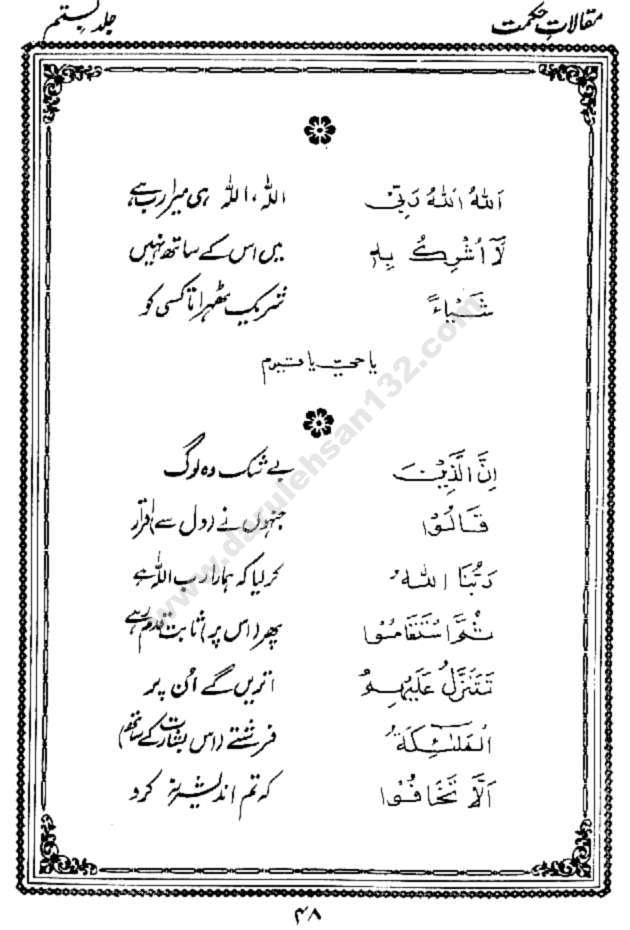 مقالاتِ حکمت جلد بستم
اَللّٰهُ اَللّٰهُ رَبِّیْ اللہ، اللہ ہی میرا رب ہے
لَآ اُشْرِكُ بِهٖ میں اس کے ساتھ نہیں
شَيْاءً شریک ٹھہراتا کسی کو
یا حیّ یا قیوم
اِنَّ الَّذِيْنَ بے شک وہ لوگ
قَالُوْا جنہوں نے (دل سے) اقرار
رَبُّنَا اللّٰهُ کر لیا کہ ہمارا رب اللہ ہے
ثُمَّ اسْتَقَامُوْا پھر (اس پر) ثابت قدم رہے
تَتَنَزَّلُ عَلَيْهِمُ اتریں گے اُن پر
الْمَلٰٓئِكَةُ فرشتے (اس بشارت کے ساتھ)
اَلَّا تَخَافُوْا کہ تم اندیشہ نہ کرو
۴۸
www.darulehsan132.com